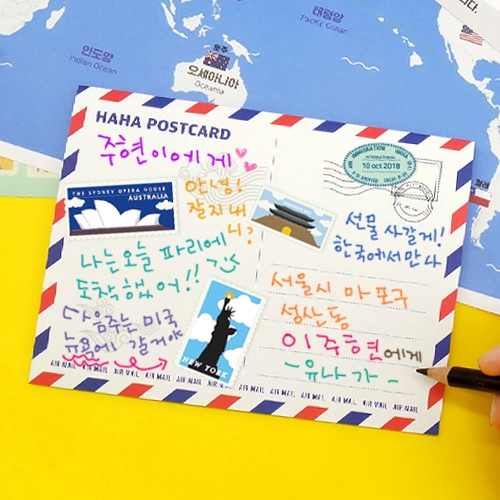 태평양
Pacific Ocean
인도양
Indian Ocean
호주
오세아니아
Oceania
HAHA POSTCARD
주현이에게
안녕!
잘지내
니?
THE SYDNEY OPERA HOUSE
AUSTRALIA
나는오늘 파리에
도착했어!!
다음주는 미국
뉴욕에 갈게야
NEW YORK
IMMIGRATION INDIA
INTERNATIONAL
10 oct 2018
선물 사갈게!
한국에서만나
서울시 마포구
성산동
이주현에게
-유나가-
AIR MAIL AIR MAIL AIR MAIL AIR MAIL AIR MAIL AIR MAIL AIR MAIL AIR MAIL